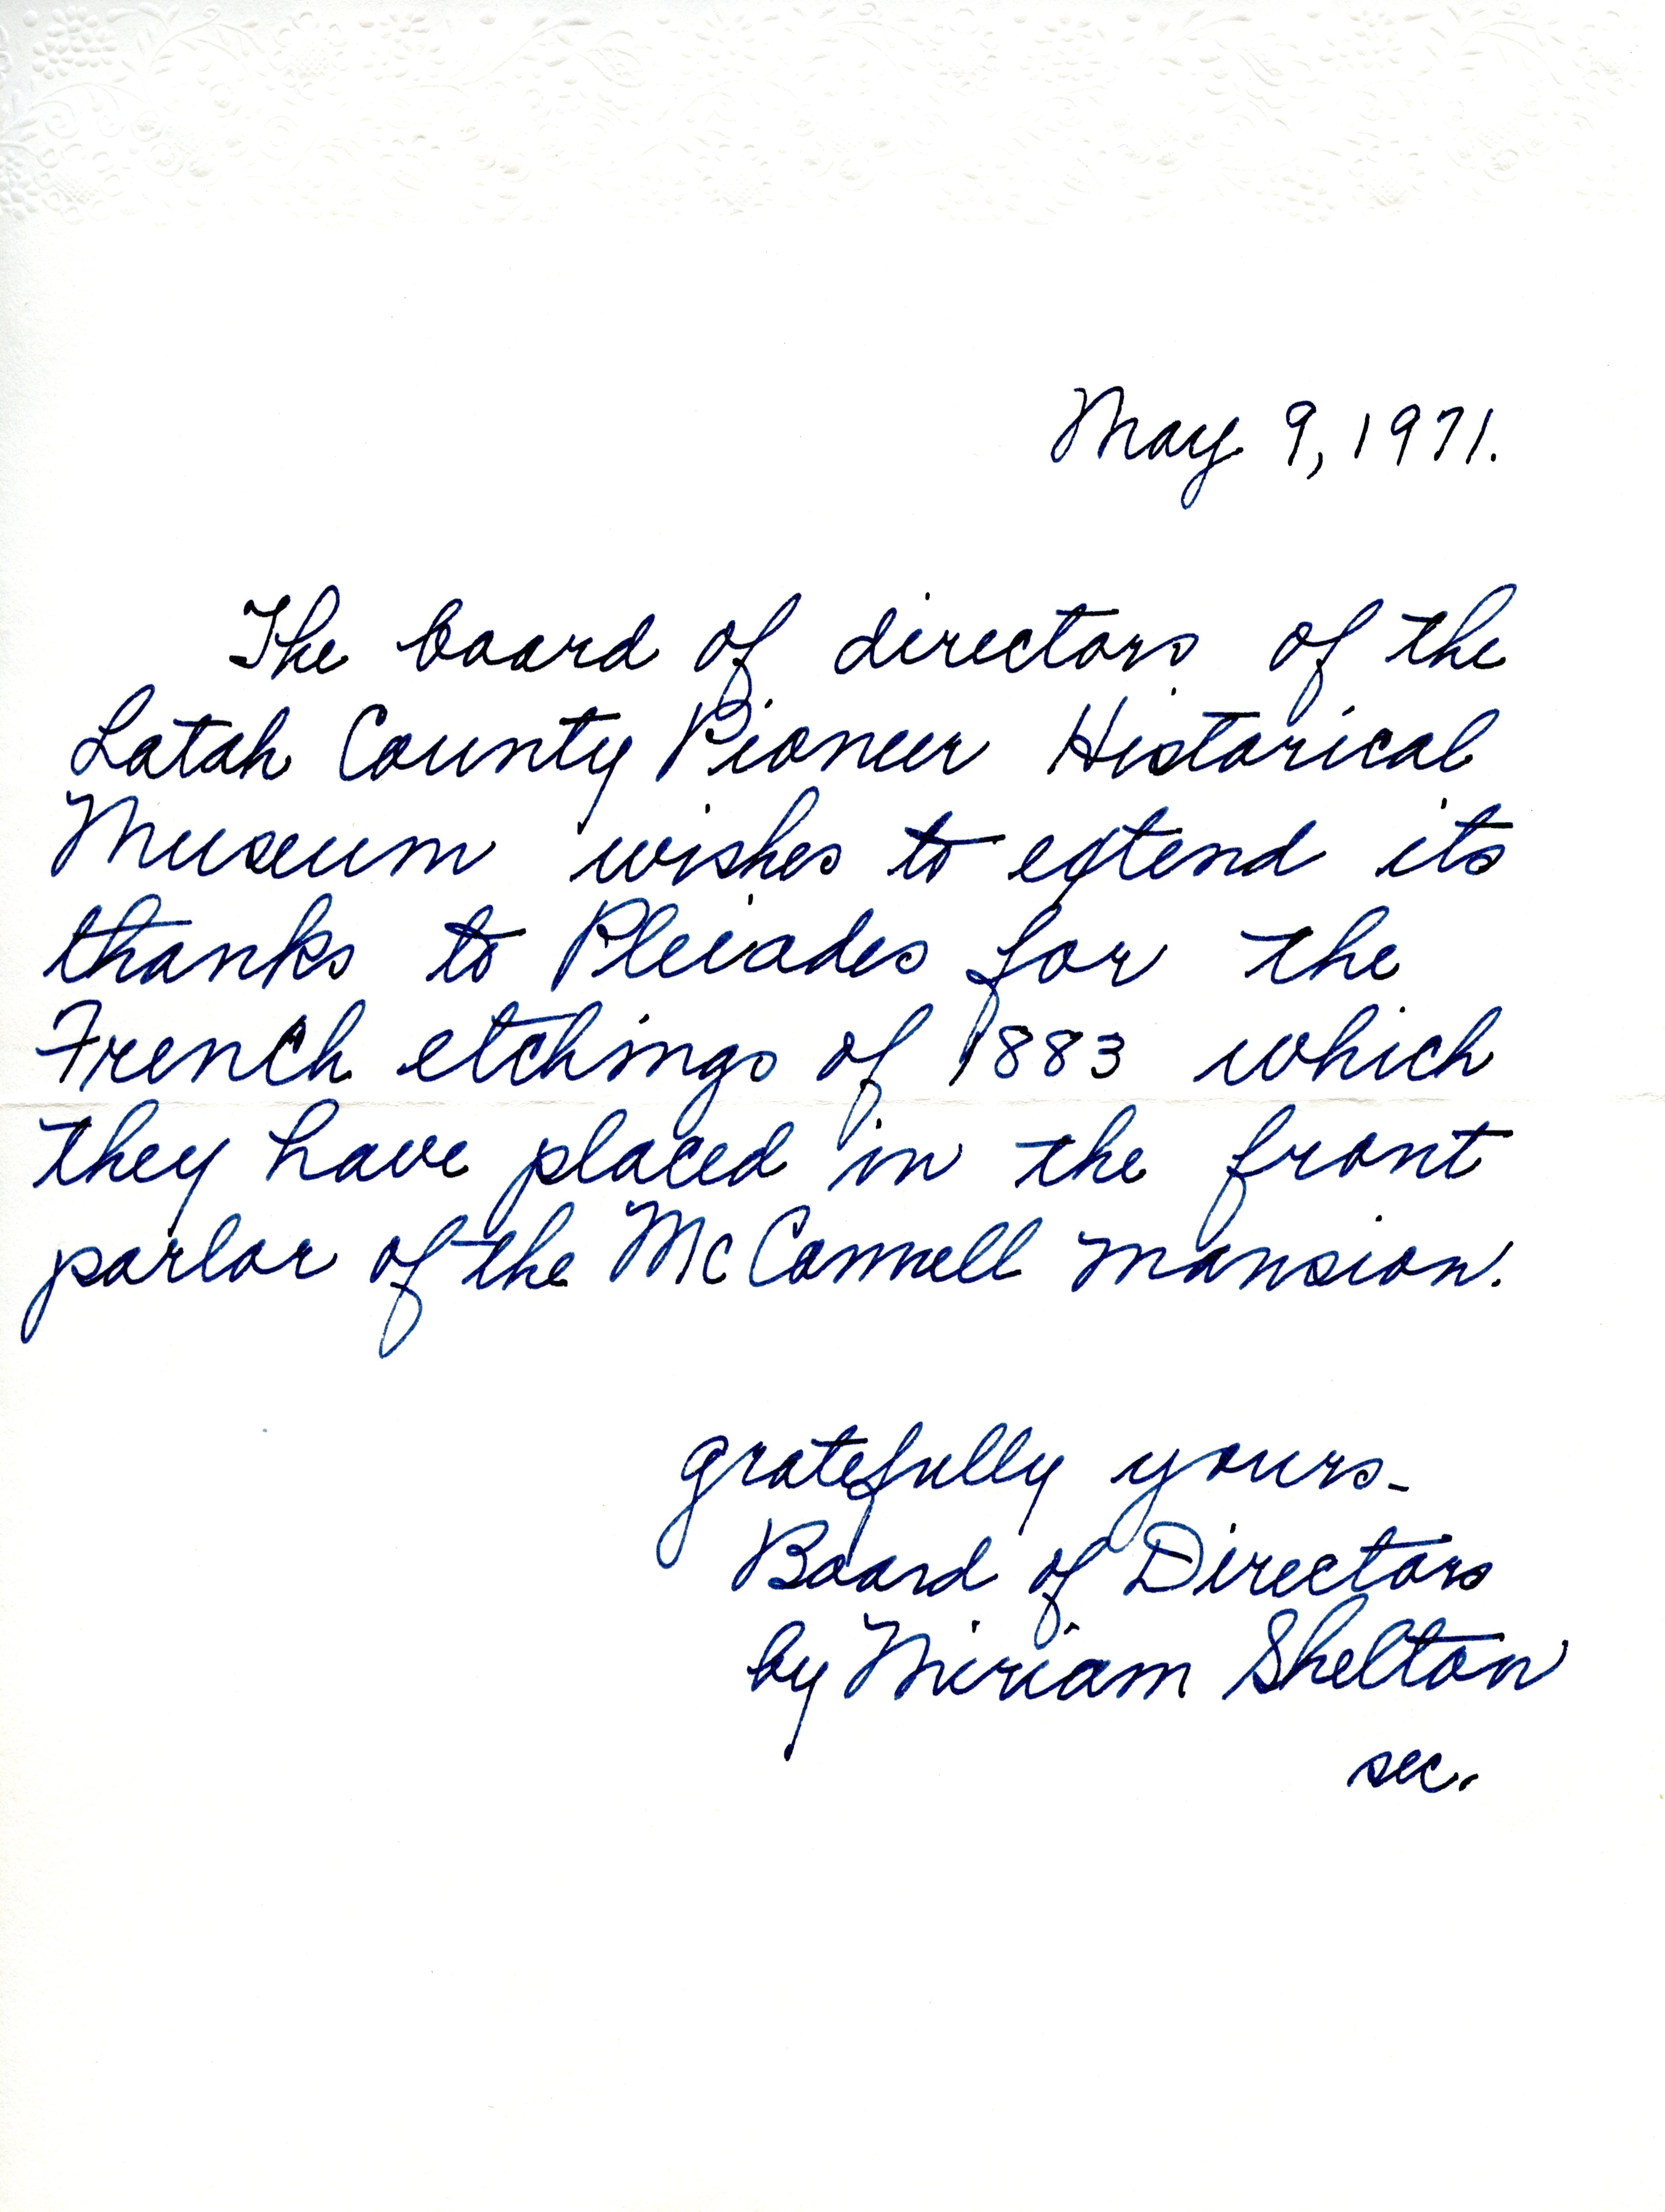 May 9, 1971.
The board of directors of the
Latah County Pioneer Historical
Museum wishes to extend its
thanks to Pleiades for the
French etchings of 1883 which
they have placed in the front
parlor of the McConnell mansion.
gratefully yours-
Board of Directors
by Miriam Shelton
sec.